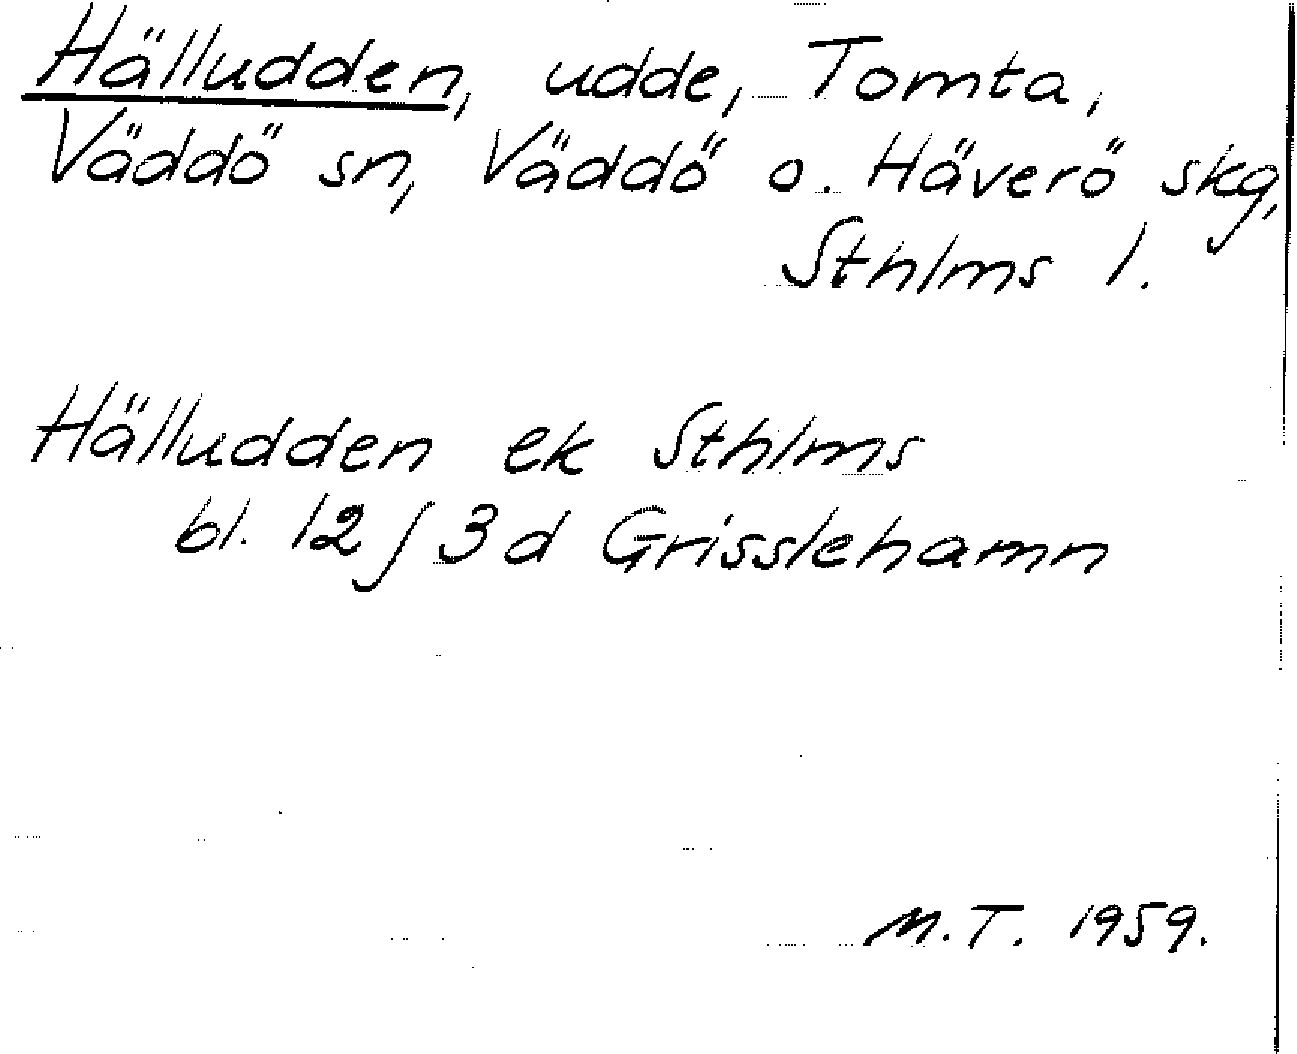 Hälludden, udde, Tomta,
Väddö sn, Väddö o. Häverö skg,
Sthlms l.
Hälludden ek Sthlms
bl. 12 J 3 d Grisslehamn
M.T. 1959.